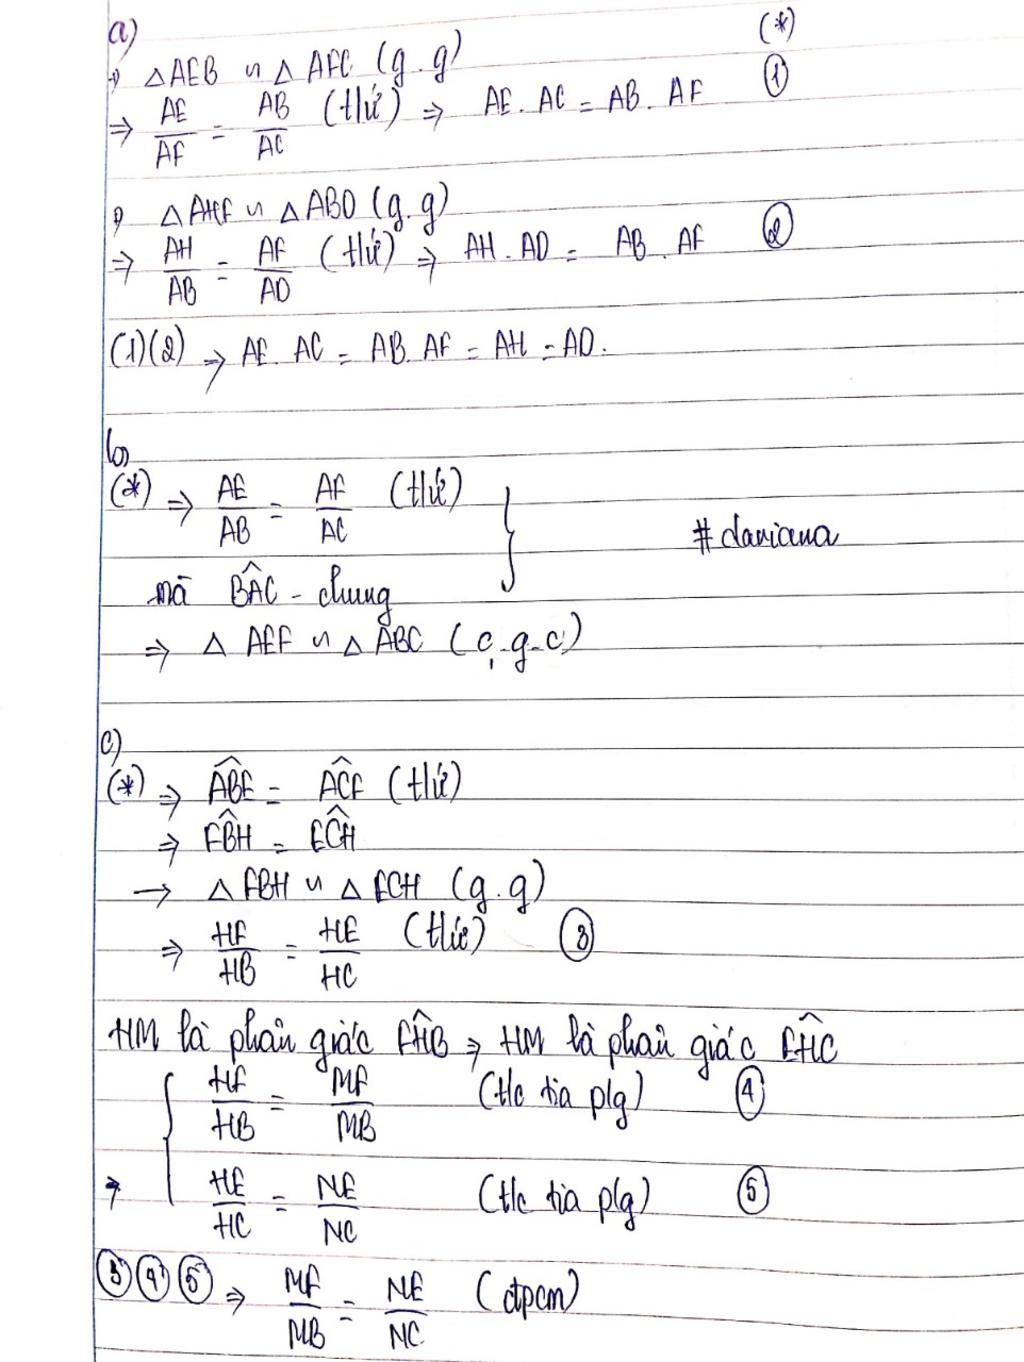 a) (*)
+) △AEB ∽ △AFC (g.g)
⇒ AE/AF = AB/AC (tlứ) ⇒ AE.AC = AB.AF ①
+) △AHF ∽ △ABD (g.g)
⇒ AH/AB = AF/AD (tlứ) ⇒ AH.AD = AB.AF ②
(1)(2) ⇒ AE.AC = AB.AF = AH = AD.
b)
(*) ⇒ AE/AB = AF/AC (tlứ)
#dariana
mà BÂC - chung
⇒ △AEF ∽ △ABC (c.g.c)
c)
(*) ⇒ AB̂E = AĈF (tlứ)
⇒ FB̂H = EĈH
→ △FBH ∽ △ECH (g.g)
⇒ HF/HB = HE/HC (tlứ) ③
HM là phân giác FĤB ⇒ HM là phân giác EĤC
HF/HB = MF/MB (t/c tia p/g) ④
⇒ HE/HC = NE/NC (t/c tia p/g) ⑤
③④⑤ ⇒ MF/MB = NE/NC (đpcm)